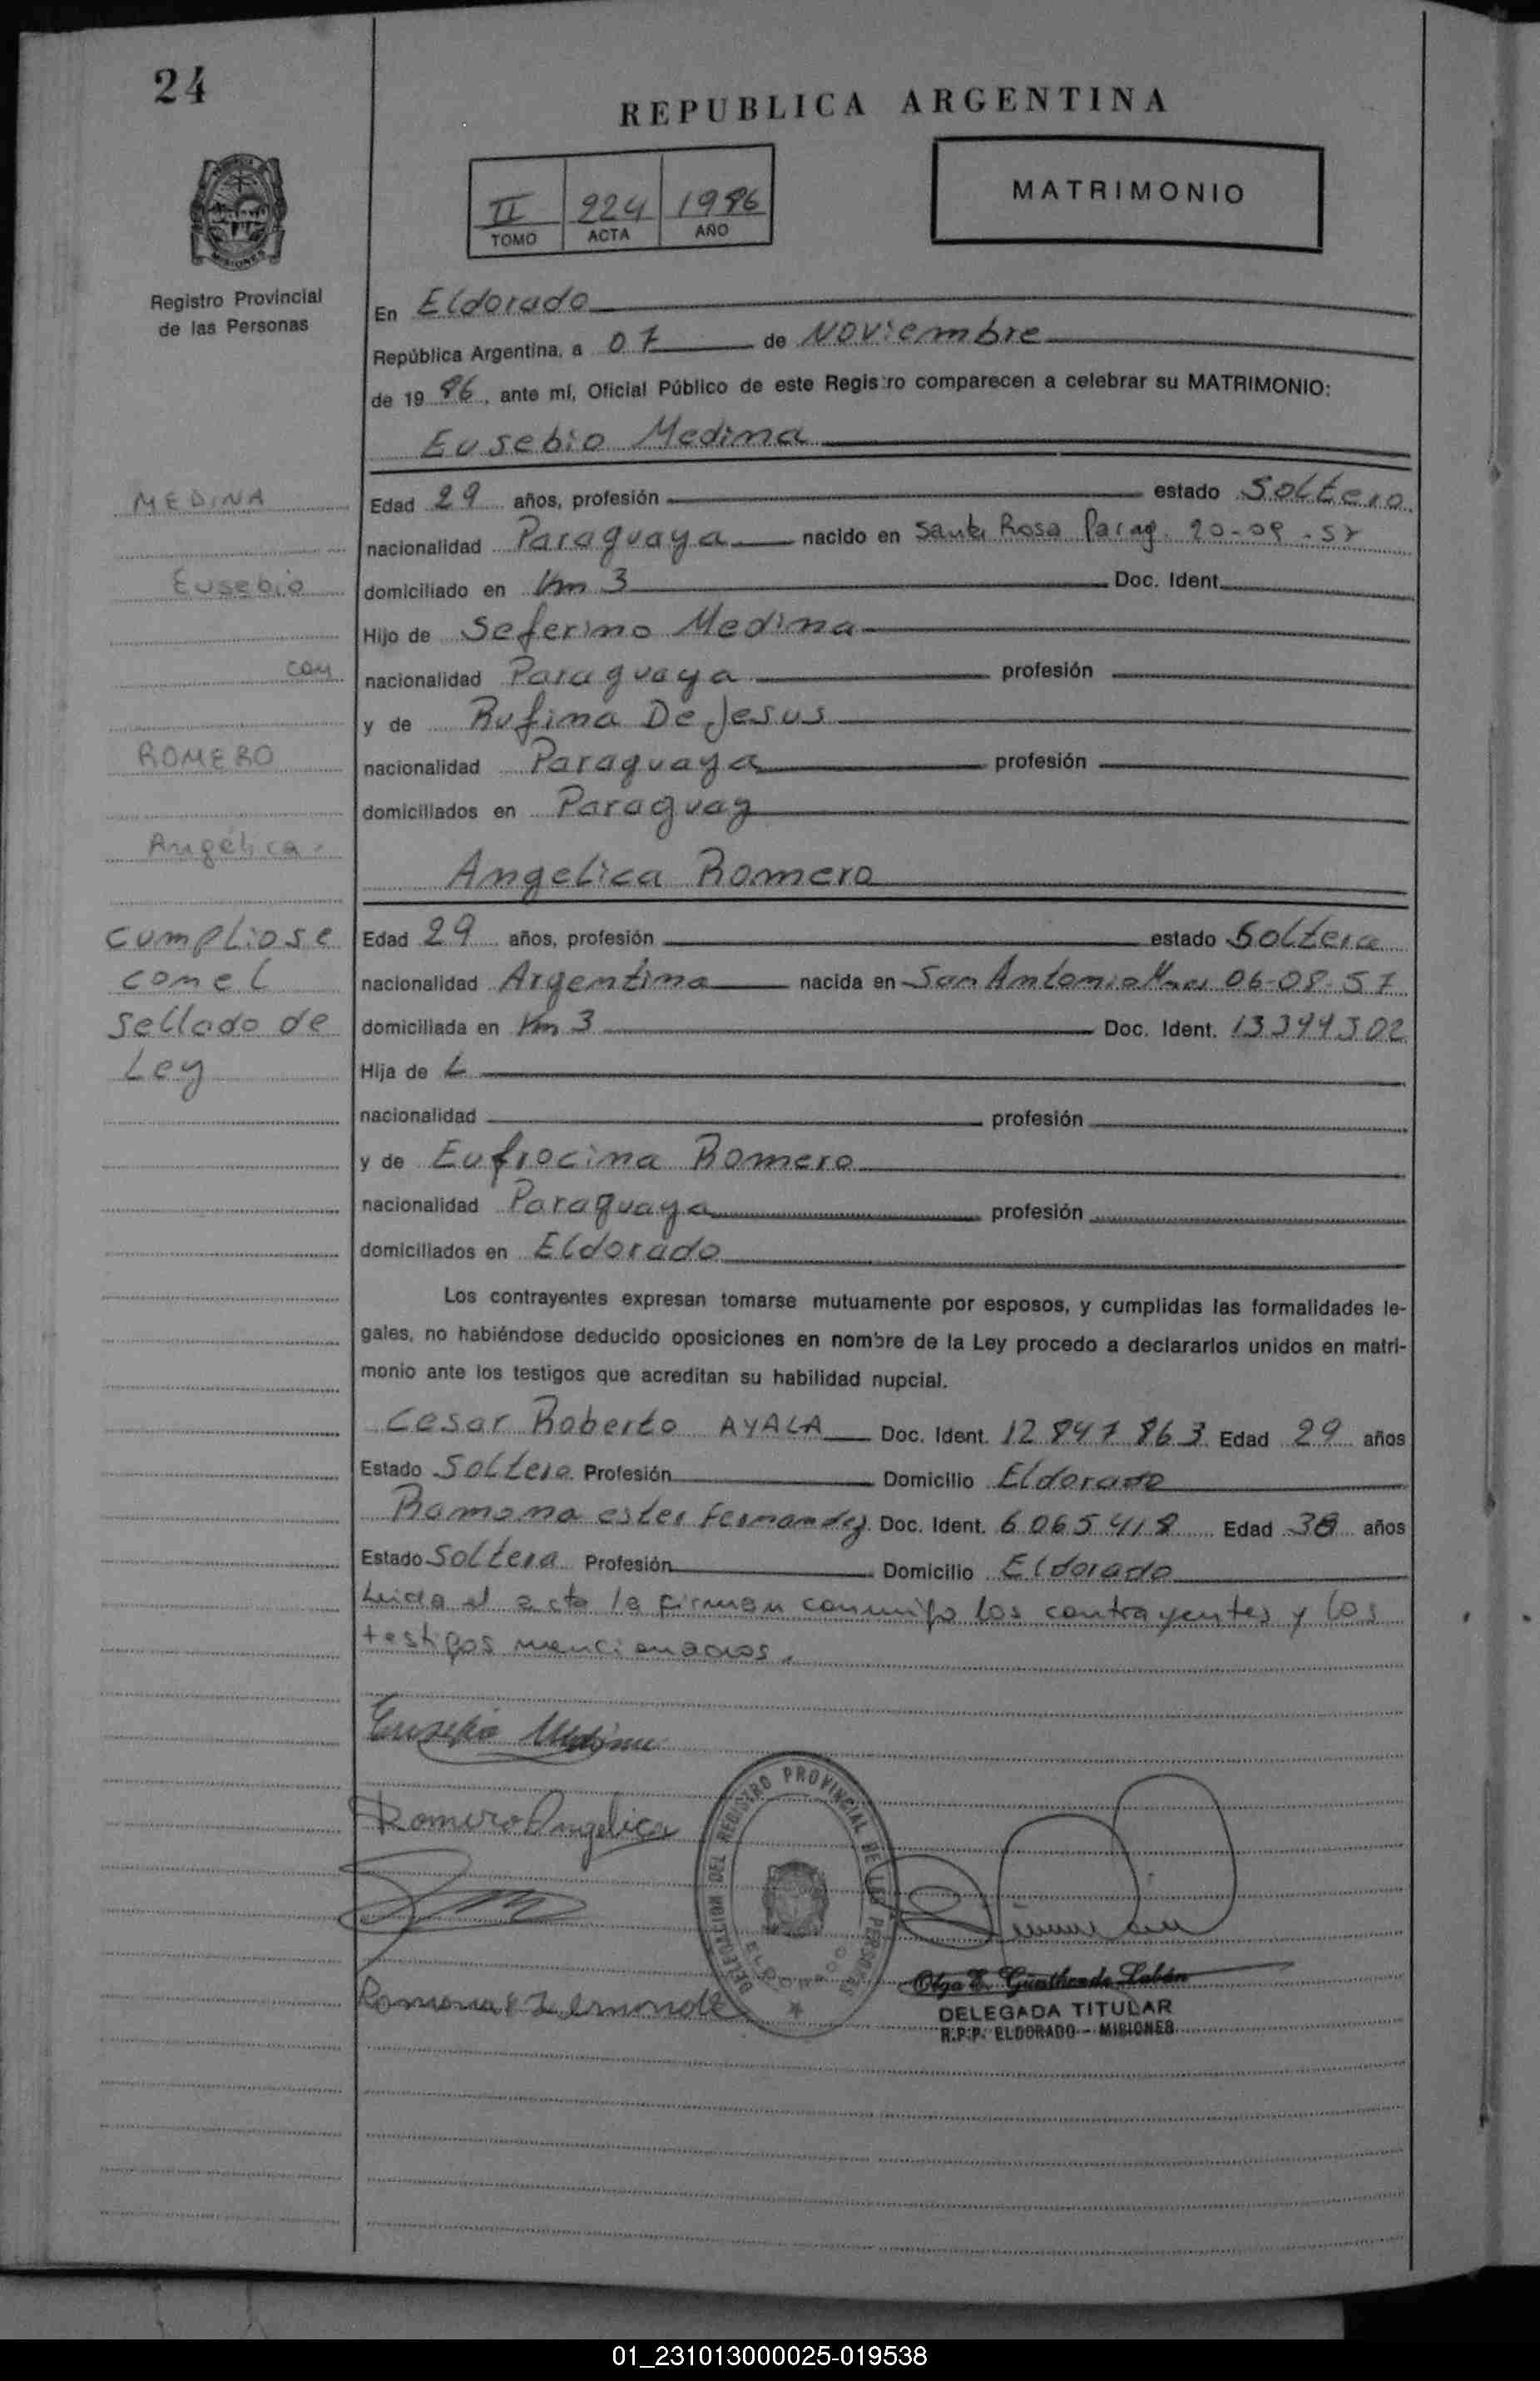 24
REPUBLICA ARGENTINA
MATRIMONIO
II 224 1986
TOMO ACTA AÑO
Registro Provincial
de las Personas
En Eldorado
República Argentina, a 07 de Noviembre
de 19 86, ante mí, Oficial Público de este Registro comparecen a celebrar su MATRIMONIO:
Eusebio Medina
MEDINA
Edad 29 años, profesión estado Soltero
nacionalidad Paraguaya nacido en Santa Rosa Parag. 20-09-57
Eusebio
domiciliado en Km 3 Doc. Ident.
Hijo de Seferino Medina
con
nacionalidad Paraguaya profesión
y de Rufina De Jesus
ROMERO
nacionalidad Paraguaya profesión
domiciliados en Paraguay
Angélica.
Angelica Romero
cumpliose
con el
sellado de
Ley
Edad 29 años, profesión estado Soltera
nacionalidad Argentina nacida en San Antonio Mnes 06-08-57
domiciliada en Km 3 Doc. Ident. 13394302
Hija de L
nacionalidad profesión
y de Eufrocina Romero
nacionalidad Paraguaya profesión
domiciliados en Eldorado
Los contrayentes expresan tomarse mutuamente por esposos, y cumplidas las formalidades le-
gales, no habiéndose deducido oposiciones en nombre de la Ley procedo a declararlos unidos en matri-
monio ante los testigos que acreditan su habilidad nupcial.
Cesar Roberto AYALA Doc. Ident. 12 847 863 Edad 29 años
Estado Soltero Profesión Domicilio Eldorado
Ramona ester Fernandez Doc. Ident. 6065418 Edad 38 años
Estado Soltera Profesión Domicilio Eldorado
Leida el acta la firman conmigo los contrayentes y los
testigos mencionados.
Eusebio Medina
Romero Angelica
DELEGACION DEL REGISTRO PROVINCIAL DE LAS PERSONAS
ELDORADO
Ramona E Fernandez
Olga E. Günther de Labán
DELEGADA TITULAR
R.P.P. ELDORADO - MISIONES
01_231013000025-019538